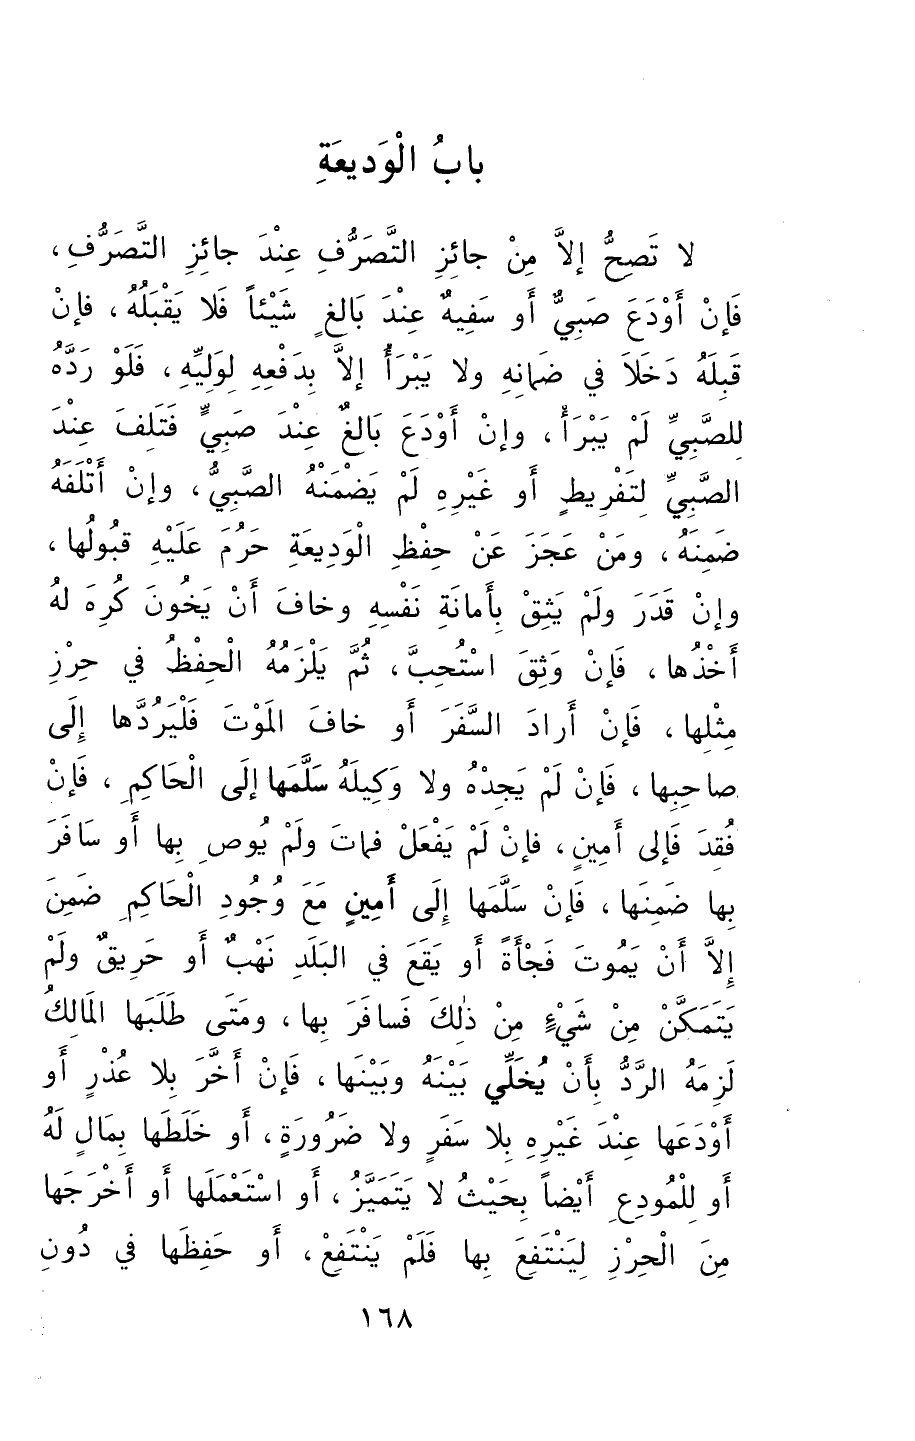 بابُ الْوَدِيعَةِ
لا تَصِحُّ إلاَّ مِنْ جائِزِ التَّصَرُّفِ عِنْدَ جائِزِ التَّصَرُّفِ ،
فَإنْ أَوْدَعَ صَبِيٌّ أَو سَفِيهٌ عِنْدَ بَالِغٍ شَيْئاً فَلا يَقْبَلُهُ ، فإنْ
قَبِلَهُ دَخَلاَ في ضَمَانِهِ ولا يَبْرَأُ إلاَّ بِدَفْعِهِ لِوَلِيِّهِ ، فَلَوْ رَدَّهُ
لِلصَّبِيِّ لَمْ يَبْرَأْ ، وإنْ أَوْدَعَ بَالِغٌ عِنْدَ صَبِيٍّ فَتَلِفَ عِنْدَ
الصَّبِيِّ لِتَفْرِيطٍ أَو غَيْرِهِ لَمْ يَضْمَنْهُ الصَّبِيُّ ، وإنْ أَتْلَفَهُ
ضَمِنَهُ ، ومَنْ عَجَزَ عَنْ حِفْظِ الْوَدِيعَةِ حَرُمَ عَلَيْهِ قَبُولُها ،
وإنْ قَدَرَ ولَمْ يَثِقْ بِأَمانَةِ نَفْسِهِ وخافَ أَنْ يَخُونَ كُرِهَ لهُ
أَخْذُها ، فَإنْ وَثِقَ اسْتُحِبَّ ، ثُمَّ يَلْزَمُهُ الْحِفْظُ في حِرْزِ
مِثْلِها ، فَإنْ أَرادَ السَّفَرَ أَو خافَ المَوْتَ فَلْيَرُدَّها إلَى
صاحِبِها ، فَإنْ لَمْ يَجِدْهُ ولا وَكِيلَهُ سَلَّمَها إلَى الْحَاكِمِ ، فَإنْ
فُقِدَ فَإلى أَمِينٍ ، فإنْ لَمْ يَفْعَلْ فماتَ ولَمْ يُوصِ بِها أَو سَافَرَ
بِها ضَمِنَها ، فَإنْ سَلَّمَها إلَى أَمِينٍ مَعَ وُجُودِ الْحَاكِمِ ضَمِنَ
إلاَّ أَنْ يَمُوتَ فَجْأَةً أَو يَقَعَ في البَلَدِ نَهْبٌ أَو حَرِيقٌ ولَمْ
يَتَمَكَّنْ مِنْ شَيْءٍ مِنْ ذٰلِكَ فَسافَرَ بِها ، ومَتَى طَلَبَها المَالِكُ
لَزِمَهُ الرَّدُّ بِأَنْ يُخَلِّي بَيْنَهُ وبَيْنَها ، فَإنْ أَخَّرَ بِلا عُذْرٍ أَو
أَوْدَعَها عِنْدَ غَيْرِهِ بِلا سَفَرٍ ولا ضَرُورَةٍ ، أَو خَلَطَها بِمَالٍ لَهُ
أَو لِلْمُودِعِ أَيْضاً بِحَيْثُ لا يَتَمَيَّزُ ، أَو اسْتَعْمَلَها أَو أَخْرَجَها
مِنَ الْحِرْزِ لِيَنْتَفِعَ بِها فَلَمْ يَنْتَفِعْ ، أَو حَفِظَها في دُونِ
١٦٨